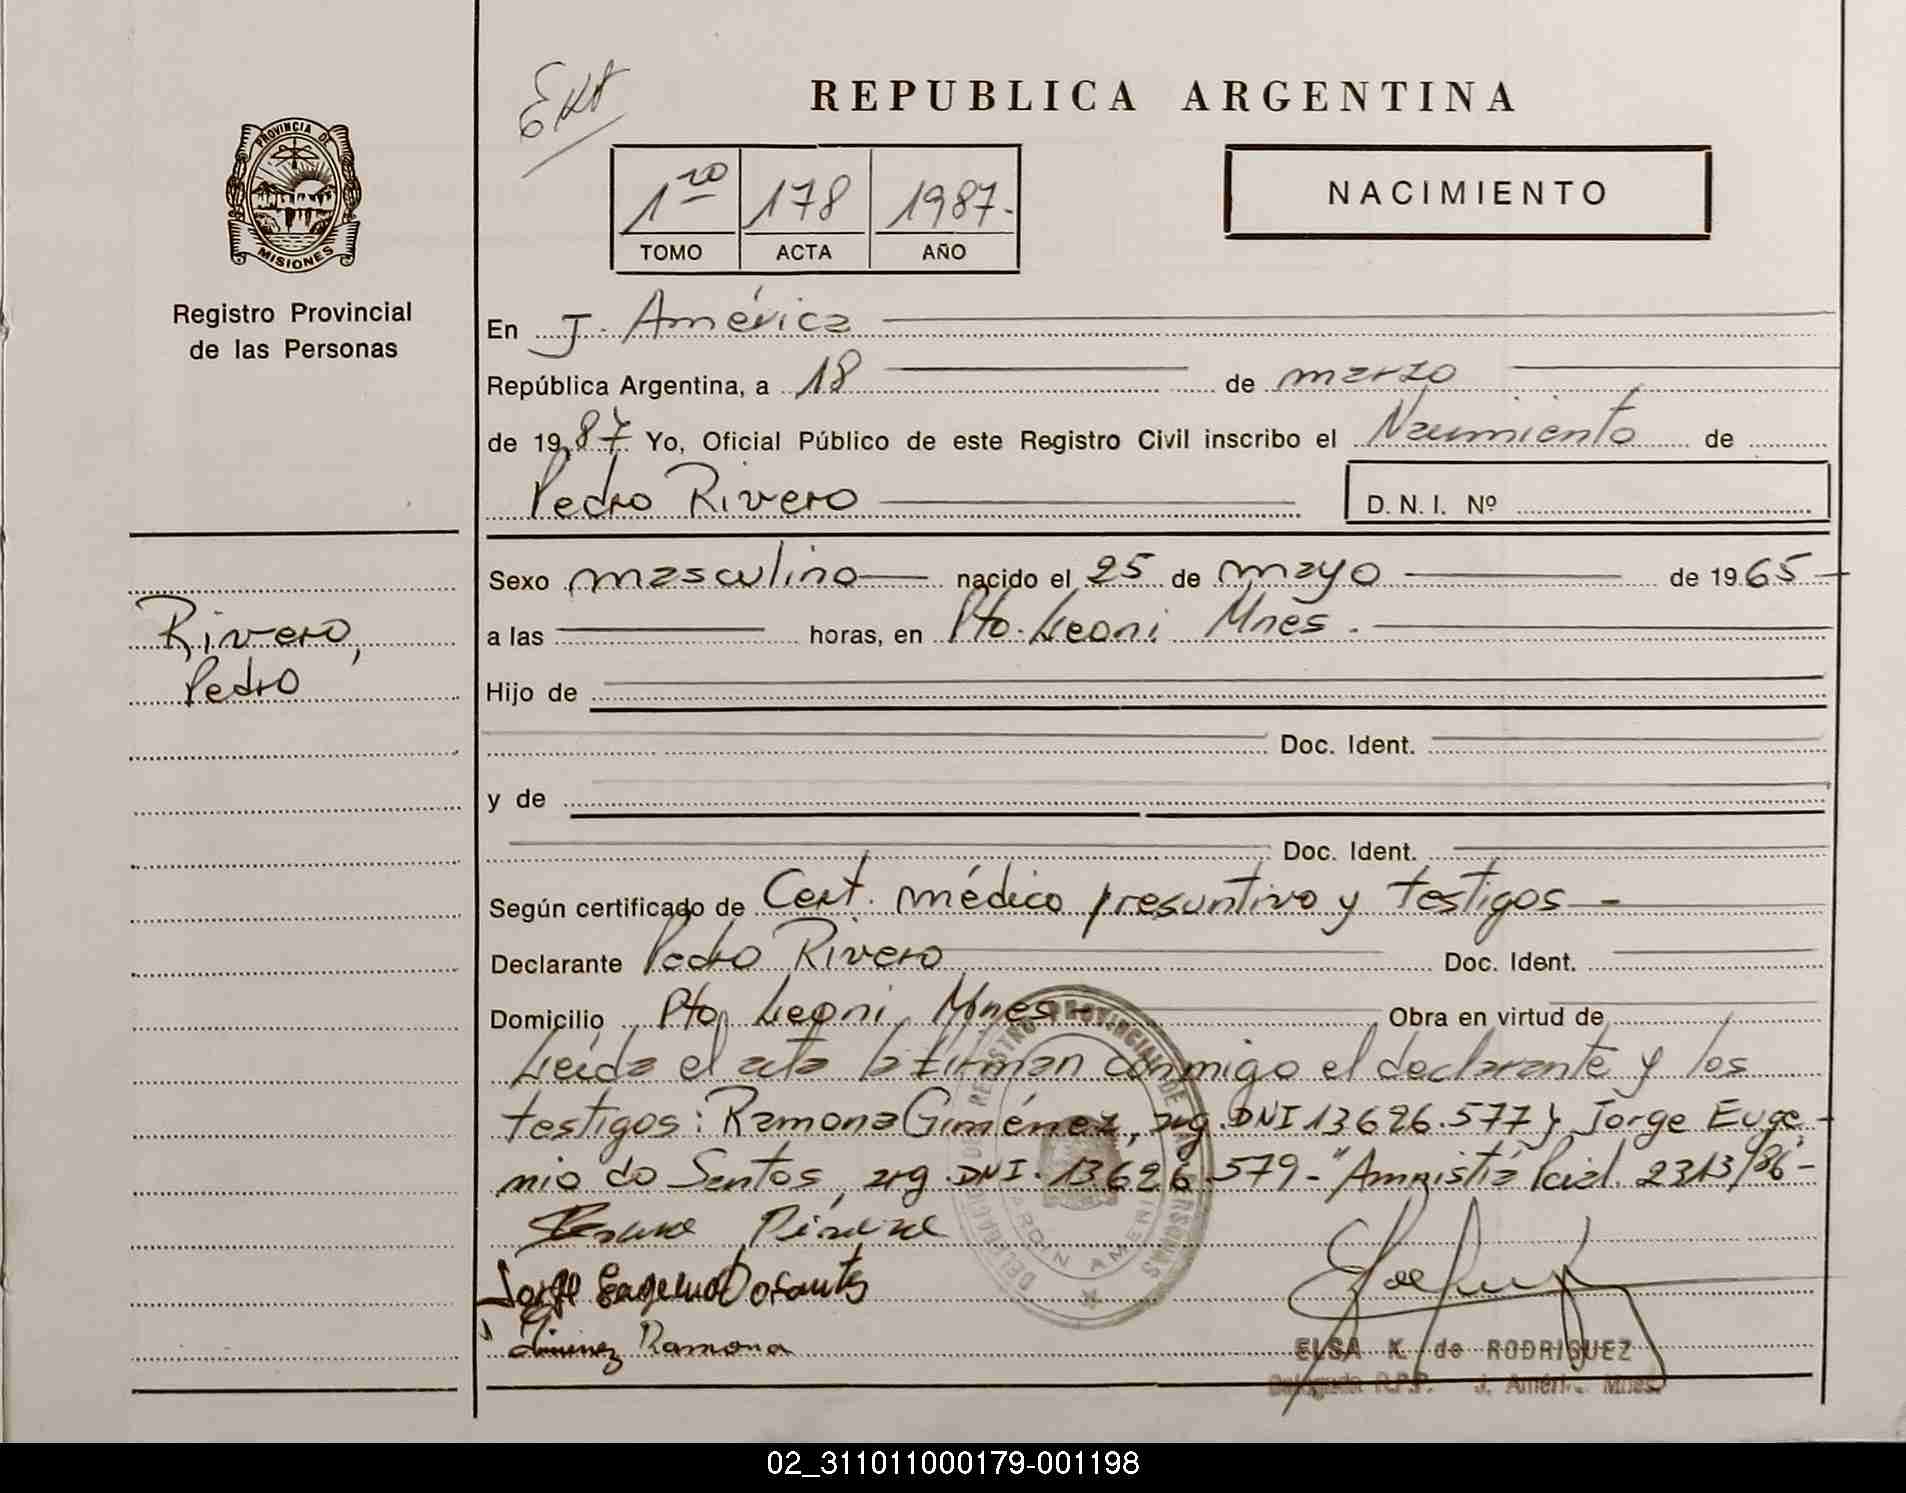 Ext
REPUBLICA ARGENTINA
PROVINCIA DE
MISIONES
1ro 178 1987.-
TOMO ACTA AÑO
NACIMIENTO
Registro Provincial
de las Personas
En J. América
República Argentina, a 18 de marzo
de 1987 Yo, Oficial Público de este Registro Civil inscribo el Nacimiento de
Pedro Rivero D. N. I. Nº
Sexo masculino nacido el 25 de mayo de 1965
Rivero,
Pedro
a las horas, en Pto. Leoni Mnes.
Hijo de
Doc. Ident.
y de
Doc. Ident.
Según certificado de Cert. médico presuntivo y testigos -
Declarante Pedro Rivero Doc. Ident.
Domicilio Pto Leoni Mnes - Obra en virtud de
Leída el acta la firman conmigo el declarante y los
testigos: Ramona Giménez, arg. DNI 13626.577 y Jorge Euge-
nio do Santos, arg. DNI. 13.626.579 - "Amnistía Pcial. 2313/86" -
Jorge Eugenio Dosantos
Giminez Ramona
ELSA K. de RODRIGUEZ
Delegada R.P.P. J. América Mnes.
02_311011000179-001198